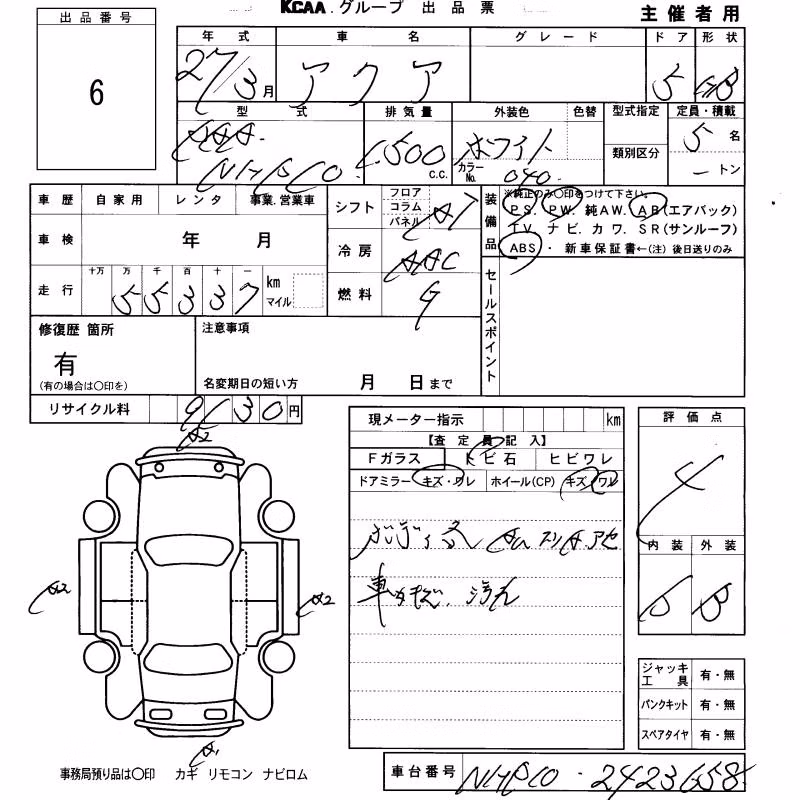 KCAA.グループ 出品票
主催者用
出品番号
6
年式 車名 グレード ドア 形状
27/3月 アクア 5 HB
型式 排気量 外装色 色替 型式指定 定員・積載
DAA NHP10 1500 C.C. ホワイト カラーNo. 040 類別区分 5名
－トン
車歴 自家用 レンタ 事業.営業車
車検 年 月
走行 十万 万 千 百 十 一 km マイル
55337
シフト フロア コラム パネル AT
冷房 AAC
燃料 G
装備品 ※純正のみ〇印をつけて下さい。
PS. PW. 純AW. AB(エアバック)
TV. ナビ. カワ. SR(サンルーフ)
ABS・ 新車保証書←(注) 後日送りのみ
セールスポイント
修復歴 箇所
有
(有の場合は〇印を)
注意事項
名変期日の短い方 月 日まで
リサイクル料 9130円
現メーター指示 km
【査定員記入】
Fガラス トビ石 ヒビワレ
ドアミラー キズ・ワレ ホイール(CP) キズ・ワレ
評価点
4
内装 外装
B B
A2
A2 A2
A1
ジャッキ工具 有・無
パンクキット 有・無
スペアタイヤ 有・無
事務局預り品は〇印 カギ リモコン ナビロム
車台番号 NHP10-2423658